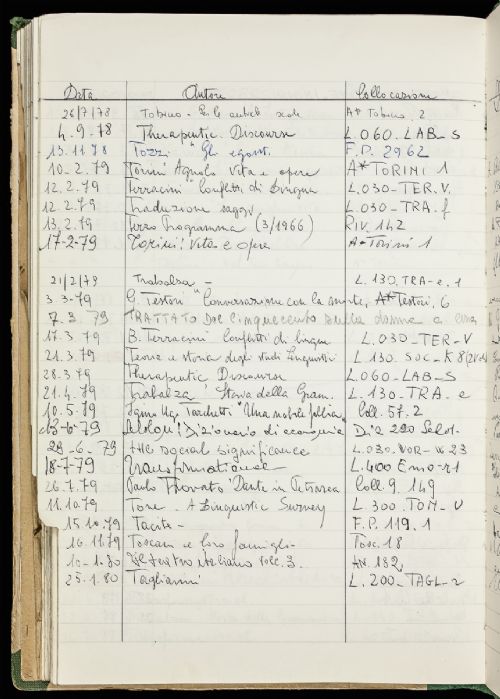 Data Autore Collocazione
26/7/78 Tobino - Per le antich scale A* Tobino, 2
4.9.78 Therapeutic Discourse L.060.LAB-S
13.11.78 Tozzi " Gli egoisti. F.P. 2962
10-2.79 Torini Agnolo vita e opere A*TORINI 1
12.2.79 Terracini " Conflitti di lingua L.030-TER.V.
12.2.79 Traduzione saggi L.030-TRA.f
13.2.79 Terzo Programma (3/1966) RIV. 142
17-2-79 Torini: Vita e opere A*Torini 1
21/2/79 Trabalza - L.130.TRA-e.1
3-3-79 G. Testori "Conversazione con la morte, A*Testori, 6
7.3.79 TRATTATO DEL Cinquecento sulla donna a cura
17.3.79 B. Terracini Conflitti di lingue L.030_TER-V
21.3.79 Teoria e storia degli studi linguistici L.130.SOC-K 8
28-3.79 Therapeutic Discourse L.060-LAB-S
21.4.79 Trabalza Storia della Gram. L.130-TRA-e
10.5.79 Iginio Ugo Tarchetti "Una nobile follia Coll.57.2
-6-79 Dizionario di economia Diz 220
28-6-79 the social significance L.030.WOR-W 23
18-7-79 transformational L.400
26.7.79 Paolo Trovato "Dante in Petrarca Coll.9.149
11.10.79 Tone - A Linguistic Survey L.300.TON-V
15.10.79 Tacito - F.P. 119.1
16.11.79 Toscani e loro famiglie Tosc.18
10-1.80 Il teatro italiano vol. 3. AN.182
25.1.80 Tagliavini L.200_TAGL-2